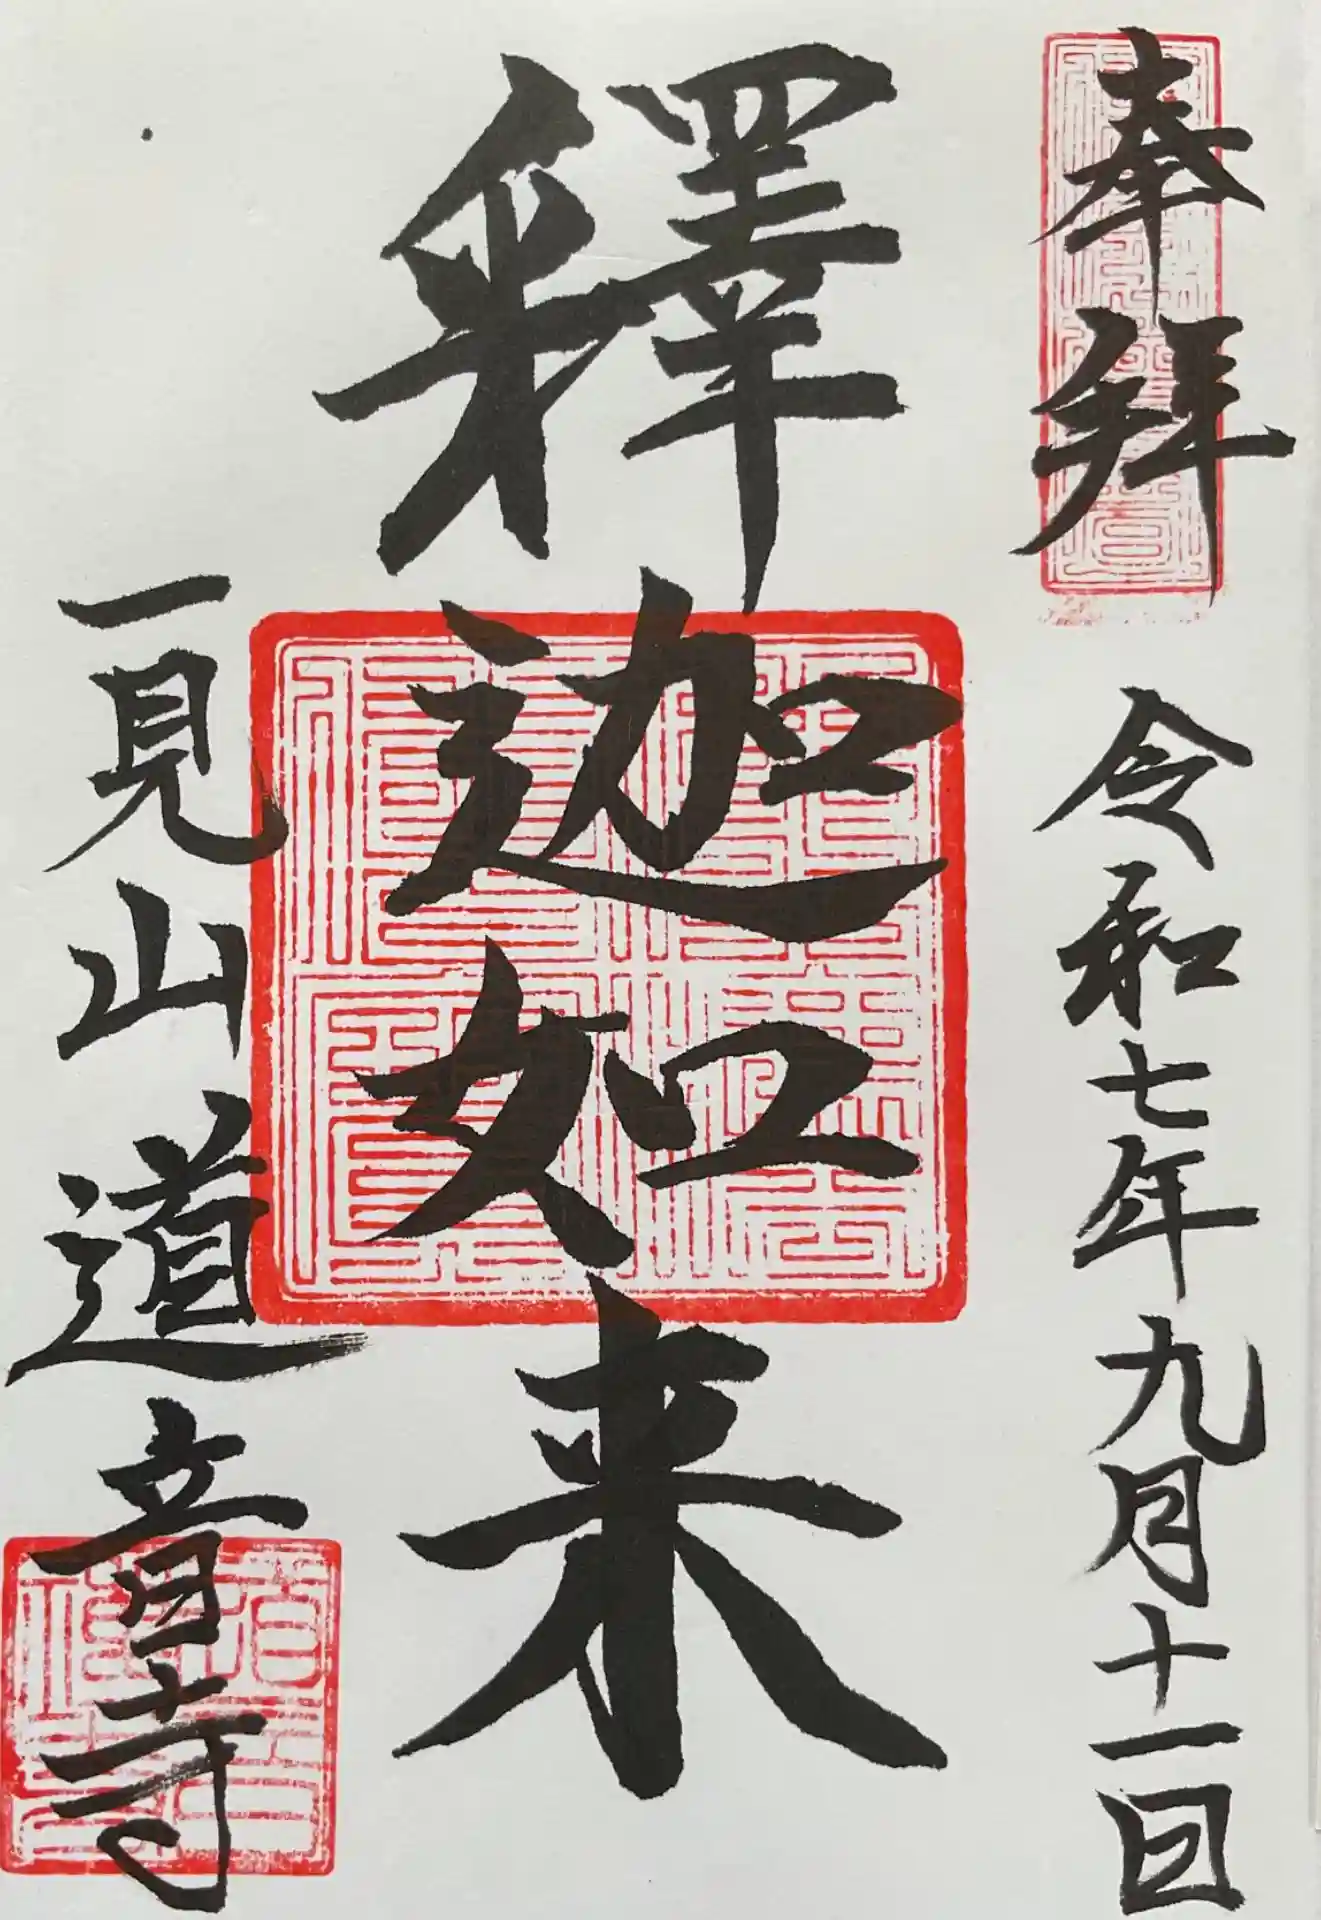 奉拜
令和七年九月十一日
釋迦如来
一見山道音寺